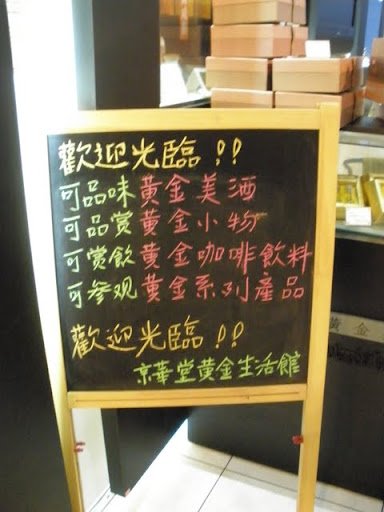 歡迎光臨!!
可品味黃金美酒
可品賞黃金小物
可賞飲黃金咖啡飲料
可參观黃金系列產品
歡迎光臨!!
京華堂黃金生活館
黃金